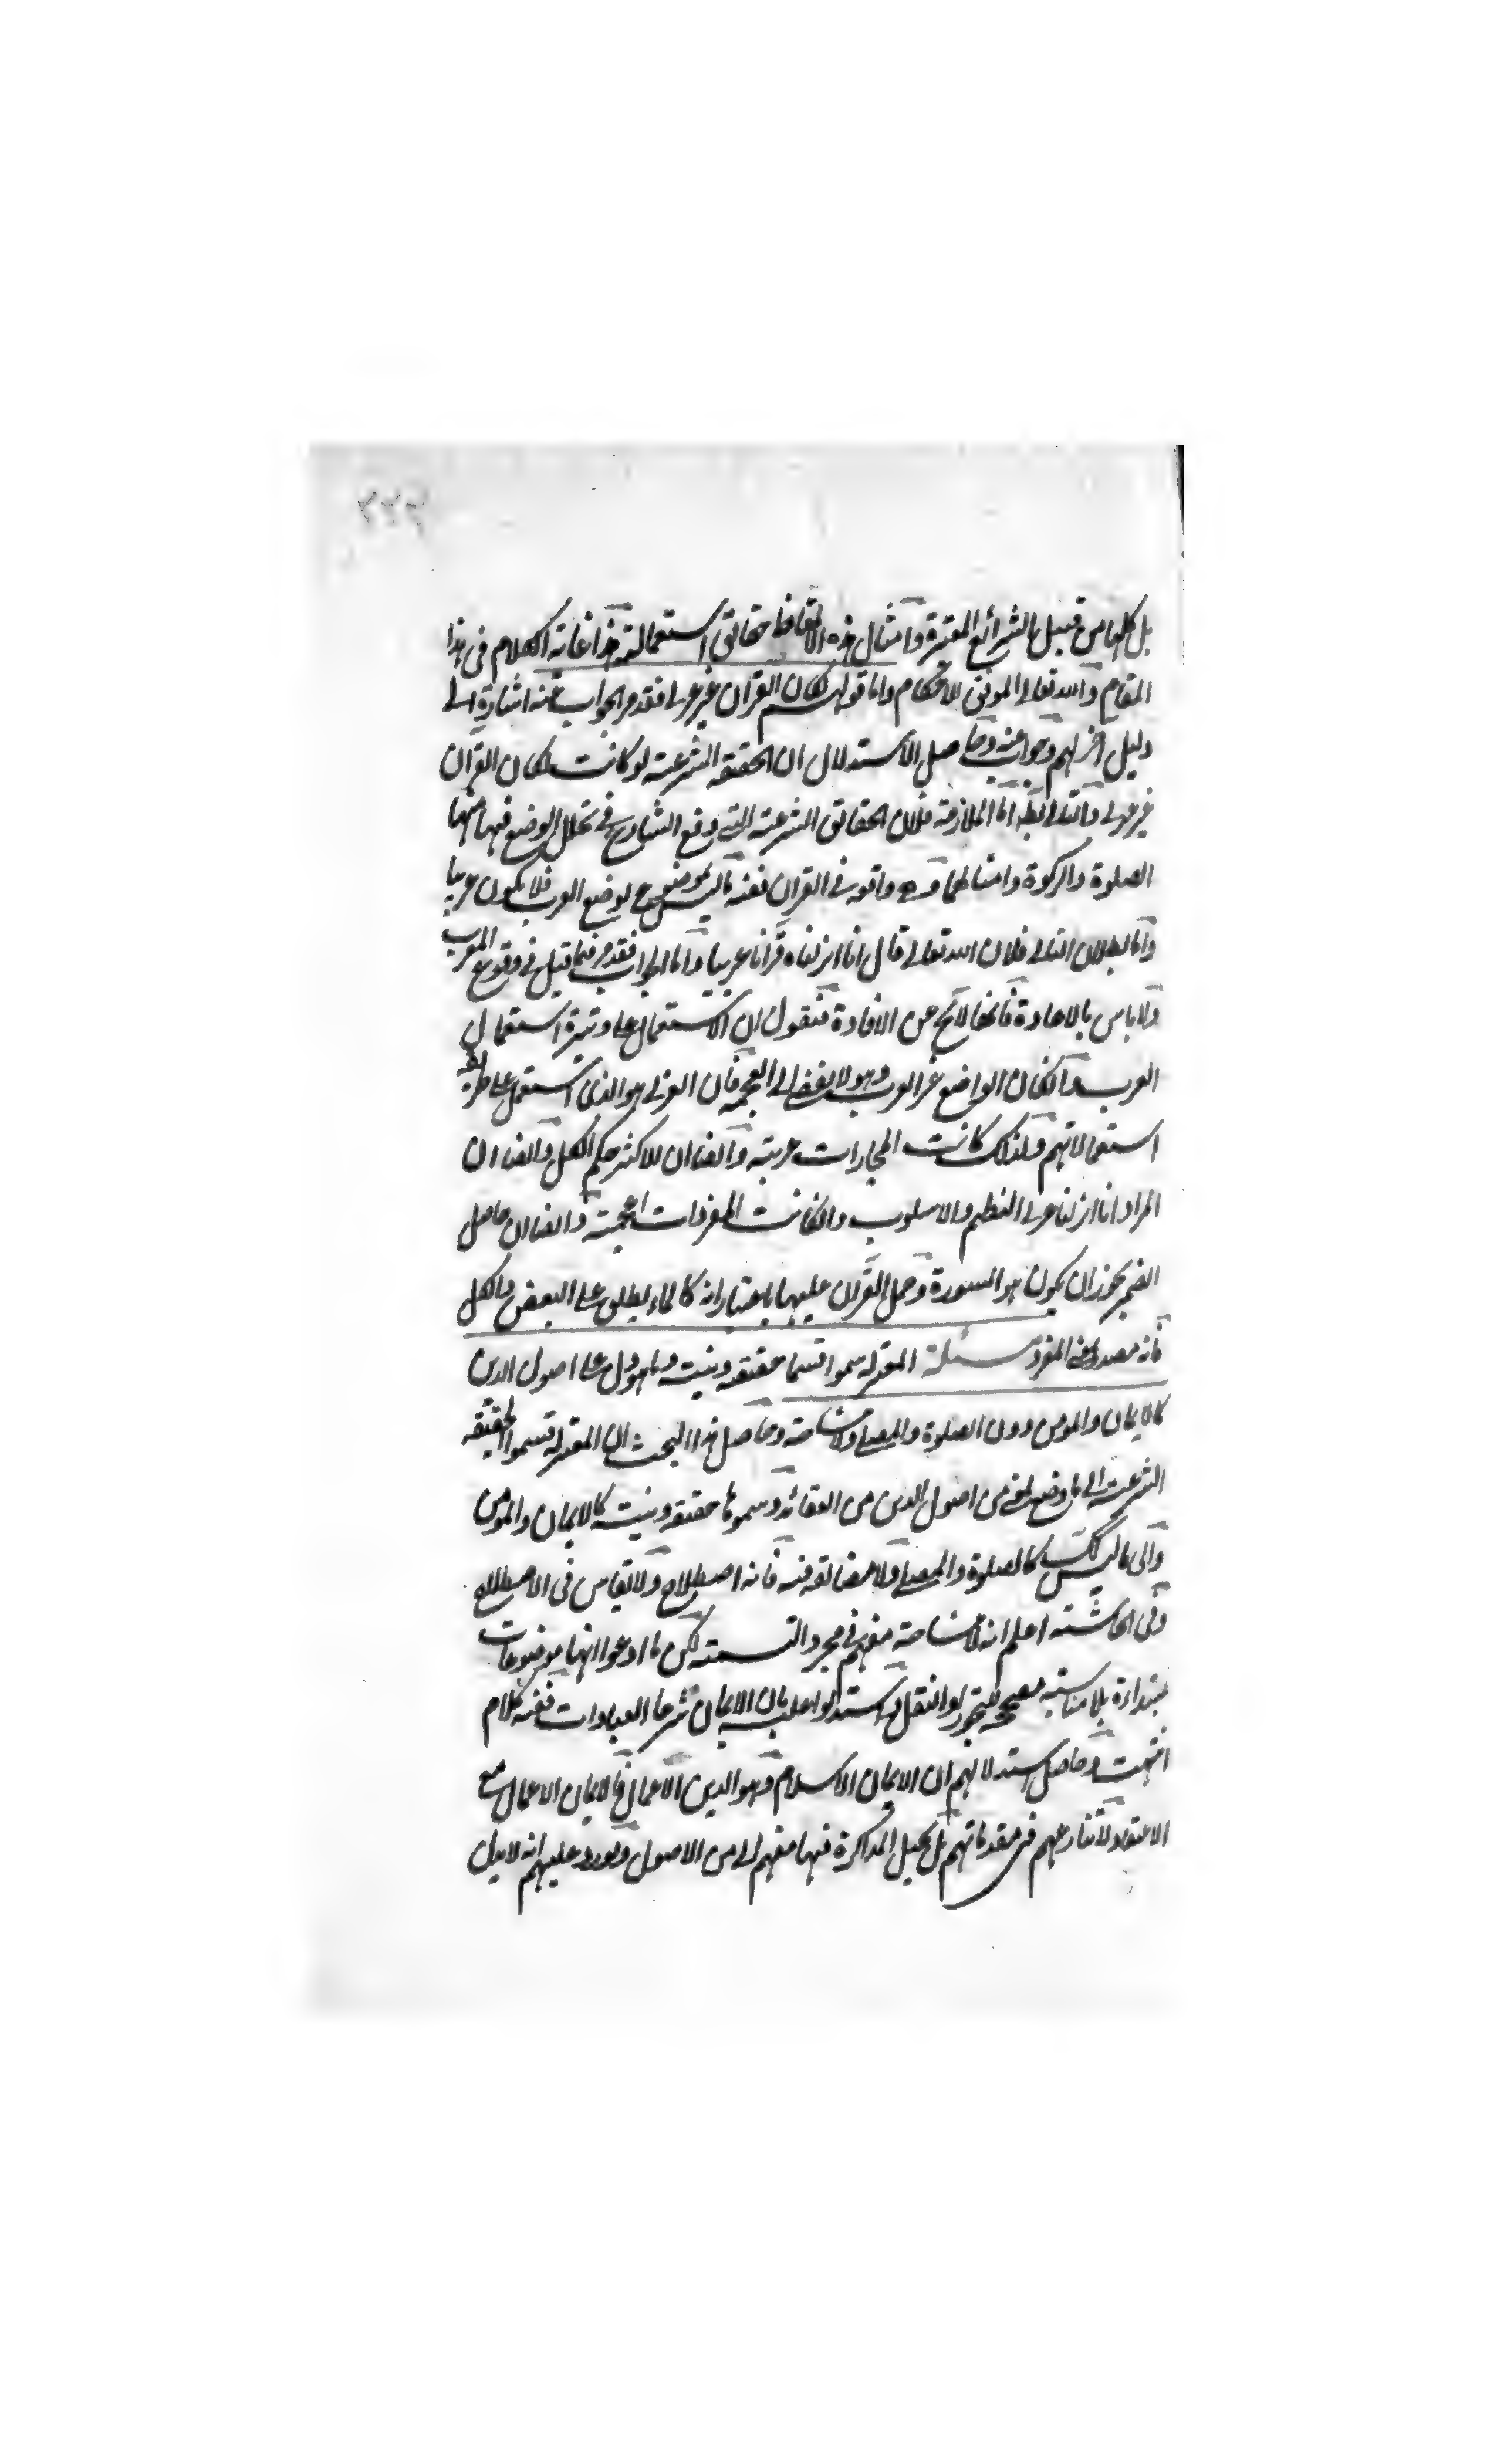 ٣٢٣
بل كلها من قبيل الشرائع المعتبرة وامثال هذه الالفاظ حقائق استعمالية هذا غاية الكلام فى هذا
المقام والله تعالى الموفق للاحكام واما قولهم لكان القرآن غير عربى فقد مر الجواب عنه اشارة الى
دليل آخر لهم وجوابه عنه وحاصل الاستدلال ان الحقيقة الشرعية لو كانت لكان القرآن
غير عربى والتالى بط اما الملازمة فلان الحقائق الشرعية التى وقع التنازع فى تخلل الوضع فيها منها
الصلوة والزكوة وامثالهما وهى واقعة فى القرآن ففيه ما ليس بموضوع لوضع العرب فلا يكون عربيا
واما بطلان التالى فلان الله تعالى قال انا انزلناه قرآنا عربيا واما الجواب فقد مر فيما قيل فى وقوع المعرب
ولا باس بالاعادة فانها لا تخ عن الافادة فنقول ان الاستعمال على وتيرة استعمال
العرب وانكان الواضع غير العرب وهو لا يفضى الى العجمة فان العربى هو الذى استعمل على طريقة
استعمالاتهم ولذلك كانت المجازات عربية وايضا ان للاكثر حكم الكل وايضا ان
المراد انا انزلنا عربى النظم والاسلوب وانكانت المفردات اعجمية وايضا ان حاصل
الضمير يجوز ان يكون هو السورة وحمل القرآن عليها باعتبار انه كالماء يطلق على البعض والكل
فانه مصدر بمعنى المفرد مسئلة المعتزلة سموا قسما حقيقة دينية وما هو دل على اصول الدين
كالايمان والمومن دون الصلوة والمصلى ولا مشاحة وحاصل هذا البحث ان المعتزلة قسموا الحقيقة
الشرعية الى ما وضع لمعنى من اصول الدين من العقائد وسموها حقيقة دينية كالايمان والمومن
والى ما ليس كك كالصلوة والمصلى ولا مضايقة فيه فانه اصطلاح ولا تقاس فى الاصطلاح
وفى الحاشية اعلم انه لا مشاحة معهم فى مجرد التسمية لكن ما ادعوا انها موضوعات
مبتداءة بلا مناسبة مصححة للتجوز او النقل واستدلوا عليه بان الايمان شرعا العبادات ففيه كلام
انتهت وحاصل استدلالهم ان الايمان الاسلام وهو الدين الاعمال فالايمان الاعمال مع
الاعتقاد لا تنازعهم فى مقدماتهم بل يحيل المذاكرة فيها معهم الى من الاصول ويورد عليهم انه لا يدل